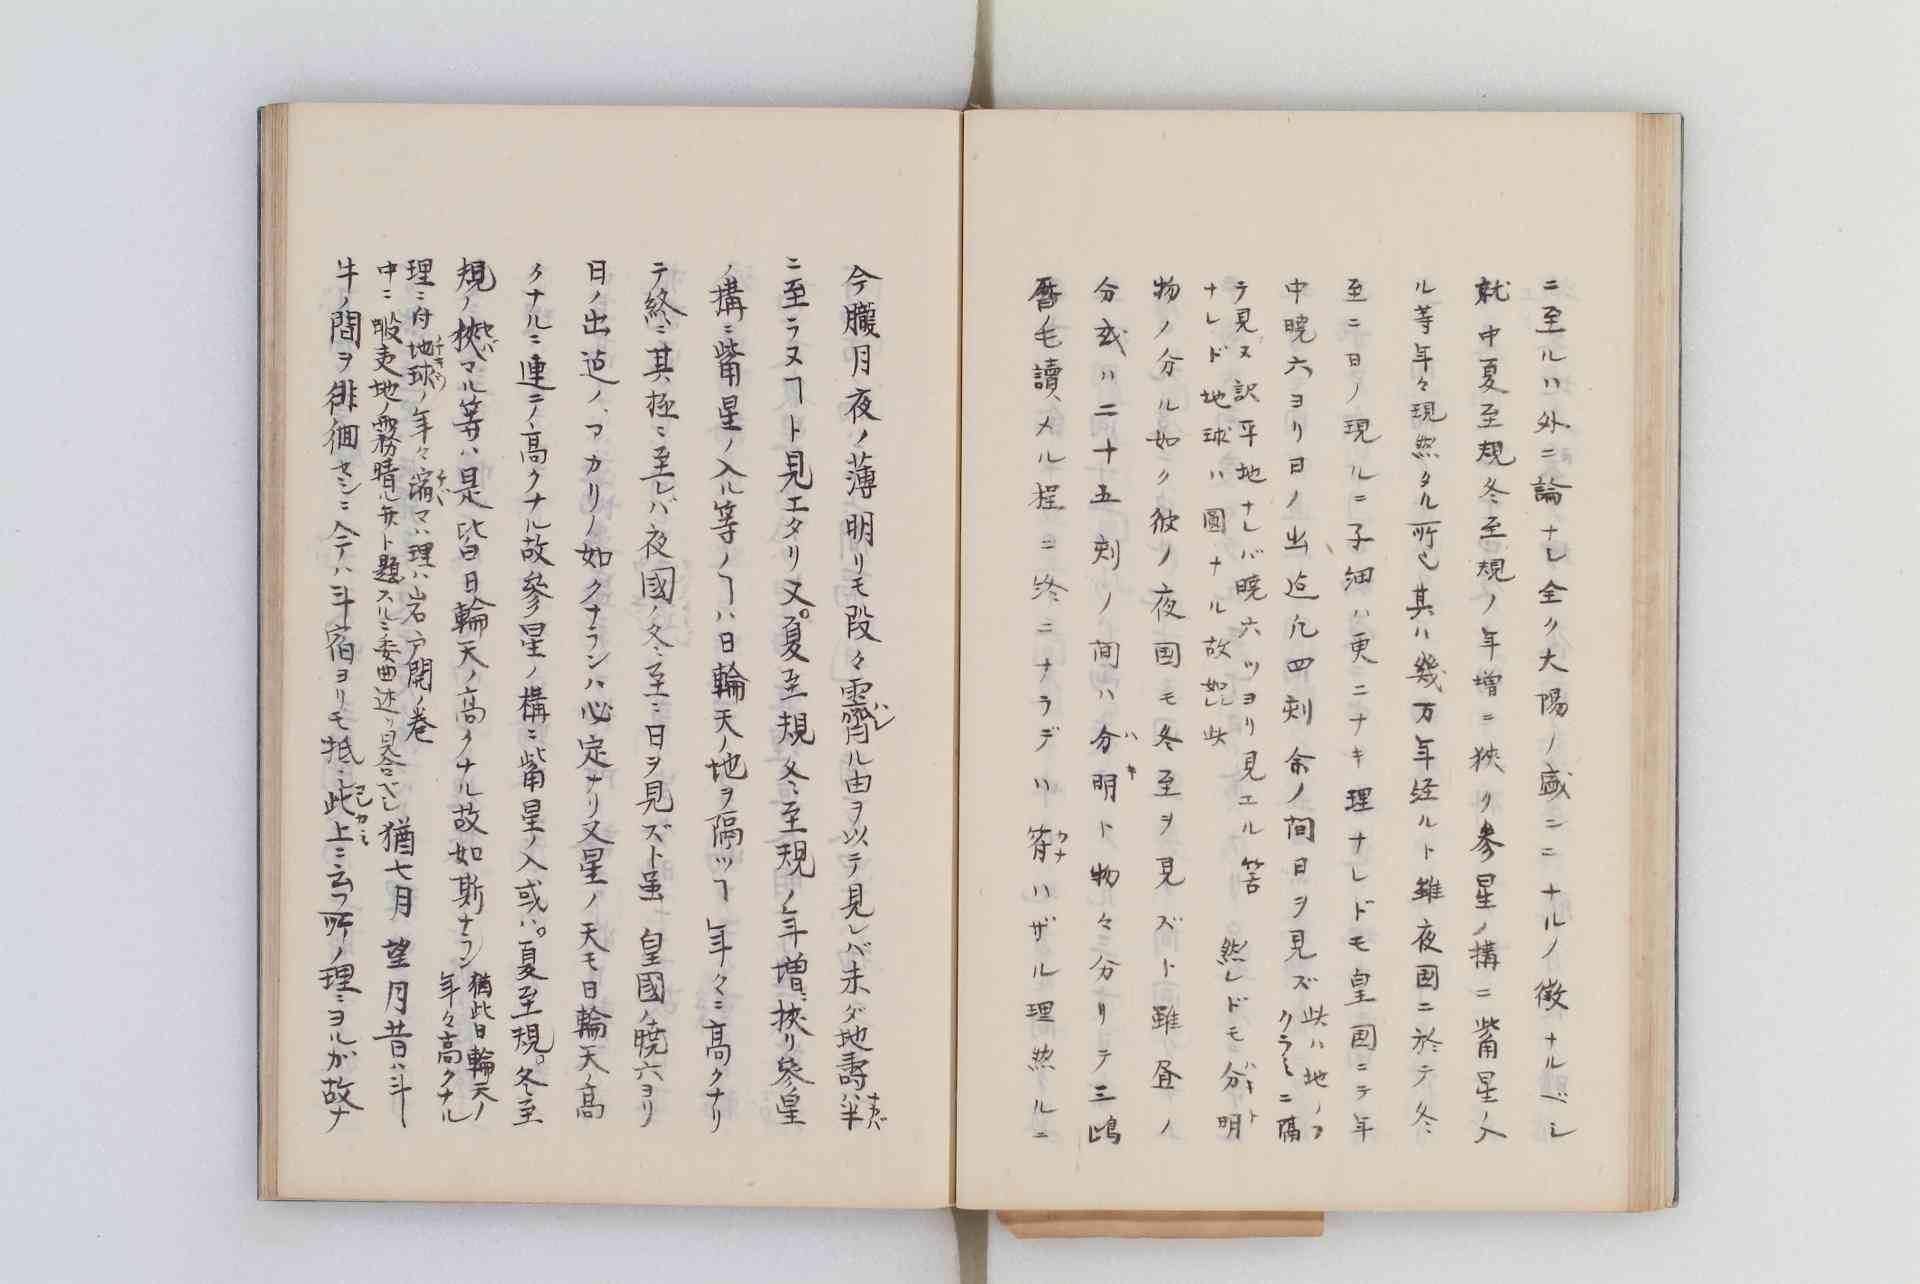 ニ至ルハ外ニ論ナシ全ク大陽ノ盛ンニナルノ徴ナルベシ
就中夏至規冬至規ノ年増ニ狹ク参星ノ構ニ觜星ノ入
ル等年々現然タル所也其ハ幾万年経ルト雖夜国ニ於テ冬
至ニ日ノ現ルニ子細ハ更ニナキ理ナレドモ皇国ニテ年
中暁六ヨリ日ノ出迠凢四刻余ノ間日ヲ見ズ
此ハ地ノフ
クラミニ隔
テ見ヌ訳平地ナレバ暁六ツヨリ見エル筈
ナレド地球ハ圓ナル故如此
然レドモ分明ハキト
物ノ分ル如ク彼ノ夜国モ冬至ヲ見ズト雖昼ノ
分或ハ二十五刻ノ間ハ分明ハキト物見々分リテ三鴎
暦モ讀メル程ニ終ニナラデハ符カナハザル理然ルニ
今朧月夜ノ薄明リモ段々霽ハレル由ヲ以テ見レバ未ダ地壽半ナカバ
ニ至ラヌヿト見エタリ又。夏至規冬至規ノ年増ニ挾リ參星
ノ構ニ觜星ノ入ル等ノヿハ日輪天ノ地ヲ隔ツヿ年々ニ高クナリ
テ終ニ其極ニ至レバ夜國ノ冬至ニ日ヲ見ズト虽皇國ノ暁六ヨリ
日ノ出迠ノ、アカリノ如クナランハ必定ナリ又星ノ天モ日輪天ノ高
クナルニ連ニ高クナル故參星ノ構ニ觜星ノ入或ハ。夏至規。冬至
規ノ挾セバマル等ハ是皆日輪天ノ高クナル故如斯ナラン
猶此日輪天ノ
年々高クナル
理ニ付地球チキウノ年々縮チヾマハ理ハ岩戸開ノ巻
中ニ蝦夷地ノ霧晴ル無ト題スルニ委曲述リ見合ベシ
猶七月望月昔ハ斗
牛ノ間ヲ徘徊セシニ今ハ斗宿ヨリモ抵シ此上コレカミニ云フ所ノ理ニヨルガ故ナ